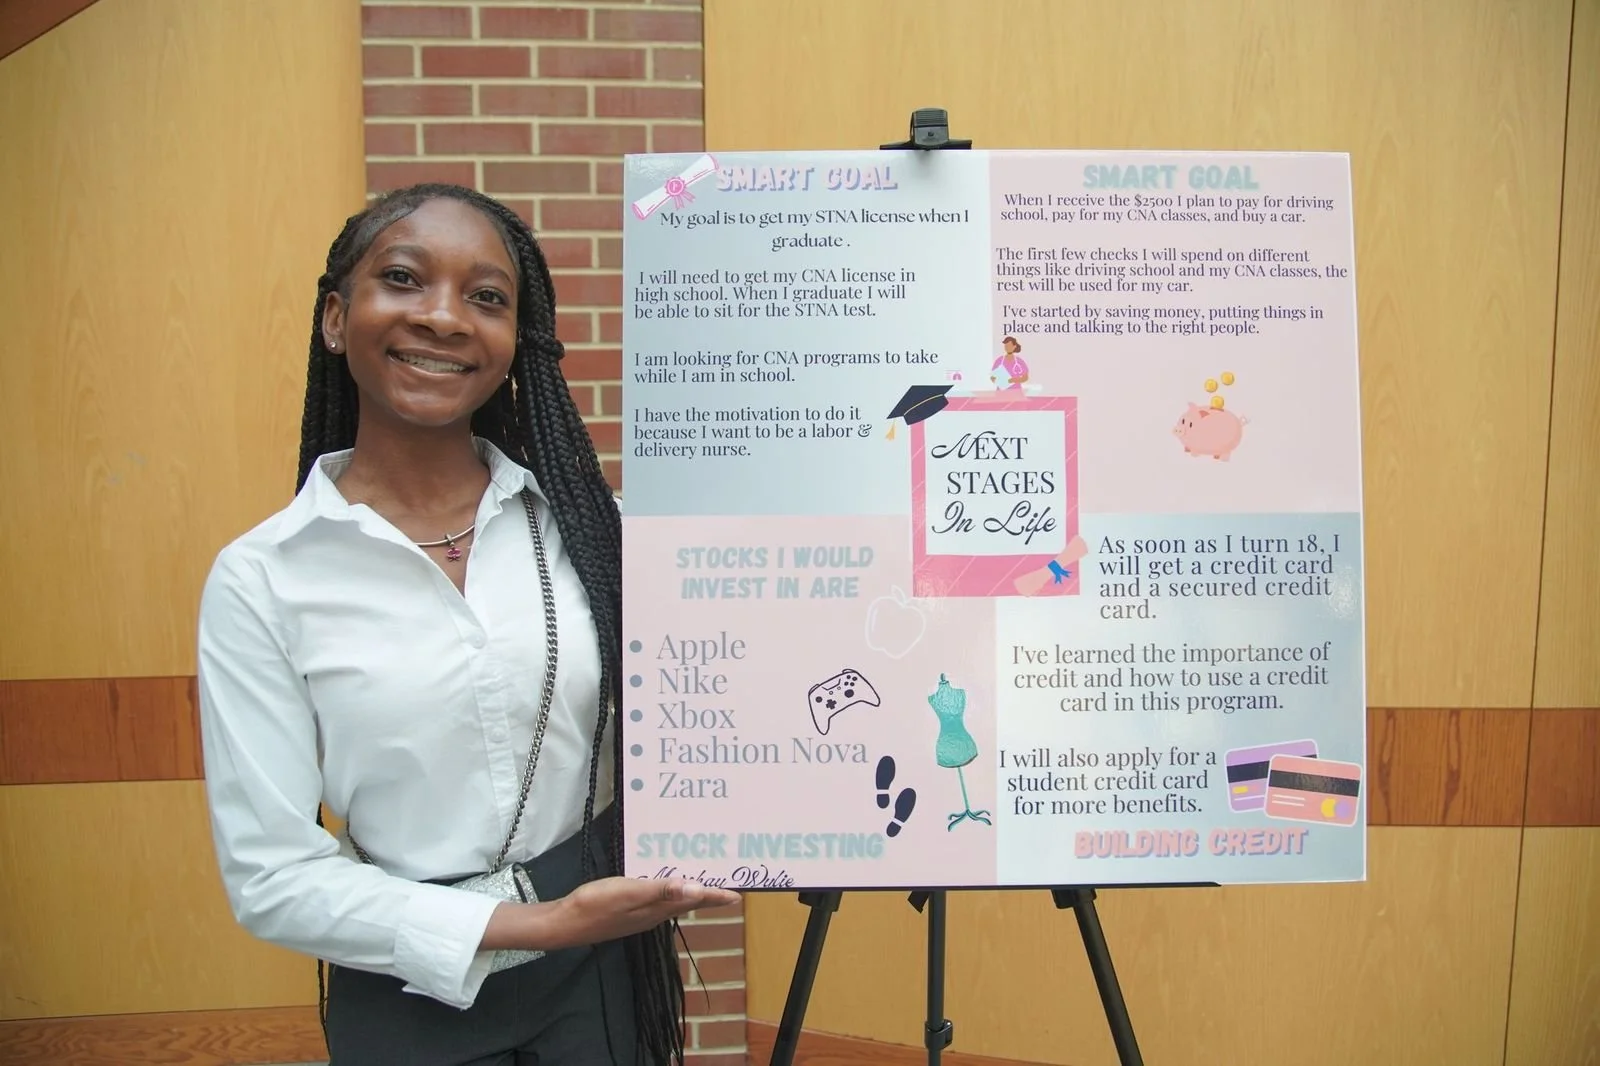 SMART GOAL
My goal is to get my STNA license when I
graduate .
I will need to get my CNA license in
high school. When I graduate I will
be able to sit for the STNA test.
I am looking for CNA programs to take
while I am in school.
I have the motivation to do it
because I want to be a labor &
delivery nurse.
SMART GOAL
When I receive the $2500 I plan to pay for driving
school, pay for my CNA classes, and buy a car.
The first few checks I will spend on different
things like driving school and my CNA classes, the
rest will be used for my car.
I've started by saving money, putting things in
place and talking to the right people.
NEXT
STAGES
In Life
STOCKS I WOULD
INVEST IN ARE
• Apple
• Nike
• Xbox
• Fashion Nova
• Zara
STOCK INVESTING
Wylie
As soon as I turn 18, I
will get a credit card
and a secured credit
card.
I've learned the importance of
credit and how to use a credit
card in this program.
I will also apply for a
student credit card
for more benefits.
BUILDING CREDIT